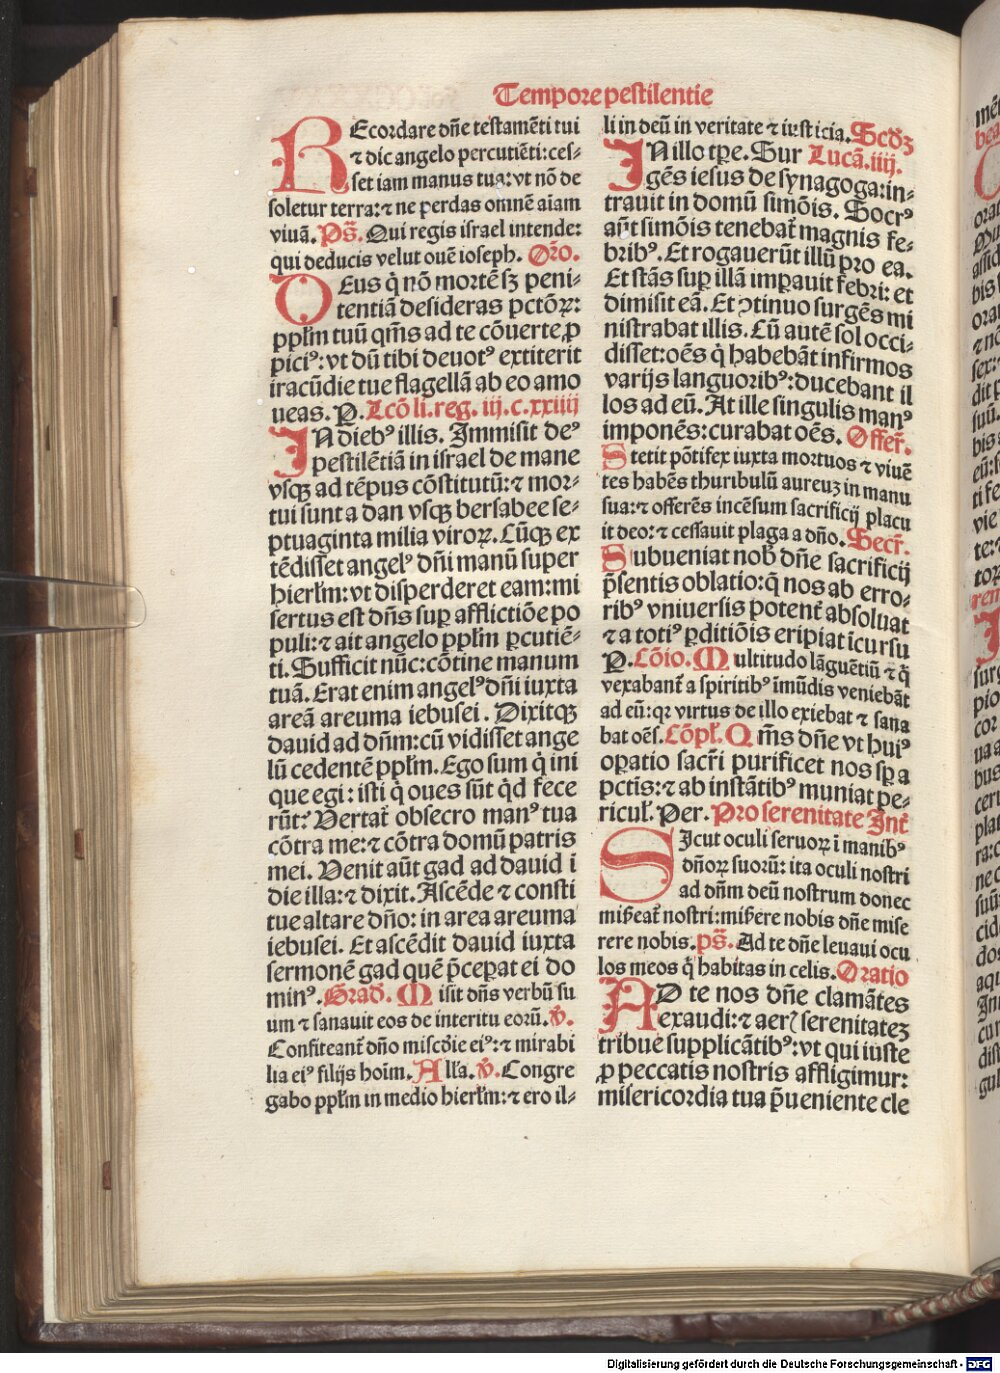 Tempore pestilentie
REcordare dñe testamẽti tui
⁊ dic angelo percutiẽti: ces⸗
set iam manus tua: vt nõ de
soletur terra: ⁊ ne perdas omnẽ aĩam
viuã. Ps̃. Qui regis israel intende:
qui deducis velut ouẽ ioseph. Oro.
DEus q̇ nõ mortẽ sꝫ peni⸗
tentiã desideras pctõꝝ:
pplm̃ tuũ qm̃s ad te cõuerte ꝓ
piciꝰ: vt dũ tibi deuotꝰ extiterit
iracũdie tue flagellã ab eo amo
ueas. P. Lcõ li. reg. iij. c. xxiiij
IN diebꝰ illis. Immisit deꝰ
pestilẽtiã in israel de mane
vsqꝫ ad tẽpus cõstitutũ: ⁊ mor⸗
tui sunt a dan vsqꝫ bersabee se⸗
ptuaginta milia viroꝝ. Cũqꝫ ex
tẽdisset angelꝰ dñi manũ super
hierłm: vt disperderet eam: mi
sertus est dñs suꝑ afflictiõe po
puli: ⁊ ait angelo pplm̃ ꝑcutiẽ⸗
ti. Sufficit nũc: cõtine manum
tuã. Erat enim angelꝰ dñi iuxta
areã areuma iebusei. Dixitqꝫ
dauid ad dñm: cũ vidisset ange
lũ cedentẽ pplm̃. Ego sum q̇ ini
que egi: isti q̇ oues sũt q̇d fece
rũt? Vertat̃ obsecro manꝰ tua
cõtra me: ⁊ cõtra domũ patris
mei. Venit aũt gad ad dauid ĩ
die illa: ⁊ dixit. Ascẽde ⁊ consti
tue altare dño: in area areuma
iebusei. Et ascẽdit dauid iuxta
sermonẽ gad quẽ p̃ceꝑat ei do
minꝰ. Grad. Misit dñs verbũ su
um ⁊ sanauit eos de interitu eorũ. V̾.
Confiteant̃ dño misc̃die eiꝰ: ⁊ mirabi
lia eiꝰ filijs hoĩm. Alła. V̾. Congre
gabo pplm̃ in medio hierłm: ⁊ ero il⸗
li in deũ in veritate ⁊ iusticia. Scdꝫ
IN illo tꝑe. Sur Lucã. iiij.
gẽs iesus de synagoga: in⸗
trauit in domũ simõis. Socrꝰ
aũt simõis tenebat̃ magnis fe⸗
bribꝰ. Et rogauerũt illũ pro ea.
Et stãs suꝑ illã imꝑauit febri: et
dimisit eã. Et ꝯtinuo surgẽs mi
nistrabat illis. Cũ autẽ sol occi⸗
disset: oẽs q̇ habebãt infirmos
varijs languoribꝰ: ducebant il
los ad eũ. At ille singulis manꝰ
imponẽs: curabat oẽs. Offer̃.
Stetit põtifex iuxta mortuos ⁊ viuẽ
tes habẽs thuribulũ aureuꝫ in manu
sua: ⁊ offerẽs incẽsum sacrificij placu
it deo: ⁊ cessauit plaga a dño. Secr̃.
Subueniat nob̃ dñe sacrificij
p̃sentis oblatio: q̃ nos ab erro⸗
ribꝰ vniuersis potent̃ absoluat
⁊ a totiꝰ ꝑditiõis eripiat ĩcursu
P. Cõio. Multitudo lãguẽtiũ ⁊ q̇
vexabant̃ a spiritibꝰ ĩmũdis veniebãt
ad eũ: qꝛ virtus de illo exiebat ⁊ sana
bat oẽs. Cõpł. Qm̃s dñe vt huiꝰ
oꝑatio sacr̃i purificet nos sꝑ a
pctis: ⁊ ab instãtibꝰ muniat pe⸗
ricuł. Per. Pro serenitate Int̃
SIcut oculi seruoꝝ ĩ manibꝰ
dñoꝝ suorũ: ita oculi nostri
ad dñm deũ nostrum donec
miẞeat̃ nostri: miẞere nobis dñe mise
rere nobis. ps̃. Ad te dñe leuaui ocu
los meos q̇ habitas in celis. Oratio
AD te nos dñe clamãtes
exaudi: ⁊ aerꝭ serenitateꝫ
tribue supplicãtibꝰ: vt qui iuste
ꝓ peccatis nostris affligimur:
misericordia tua p̃ueniente cle
Digitalisierung gefördert durch die Deutsche Forschungsgemeinschaft - DFG